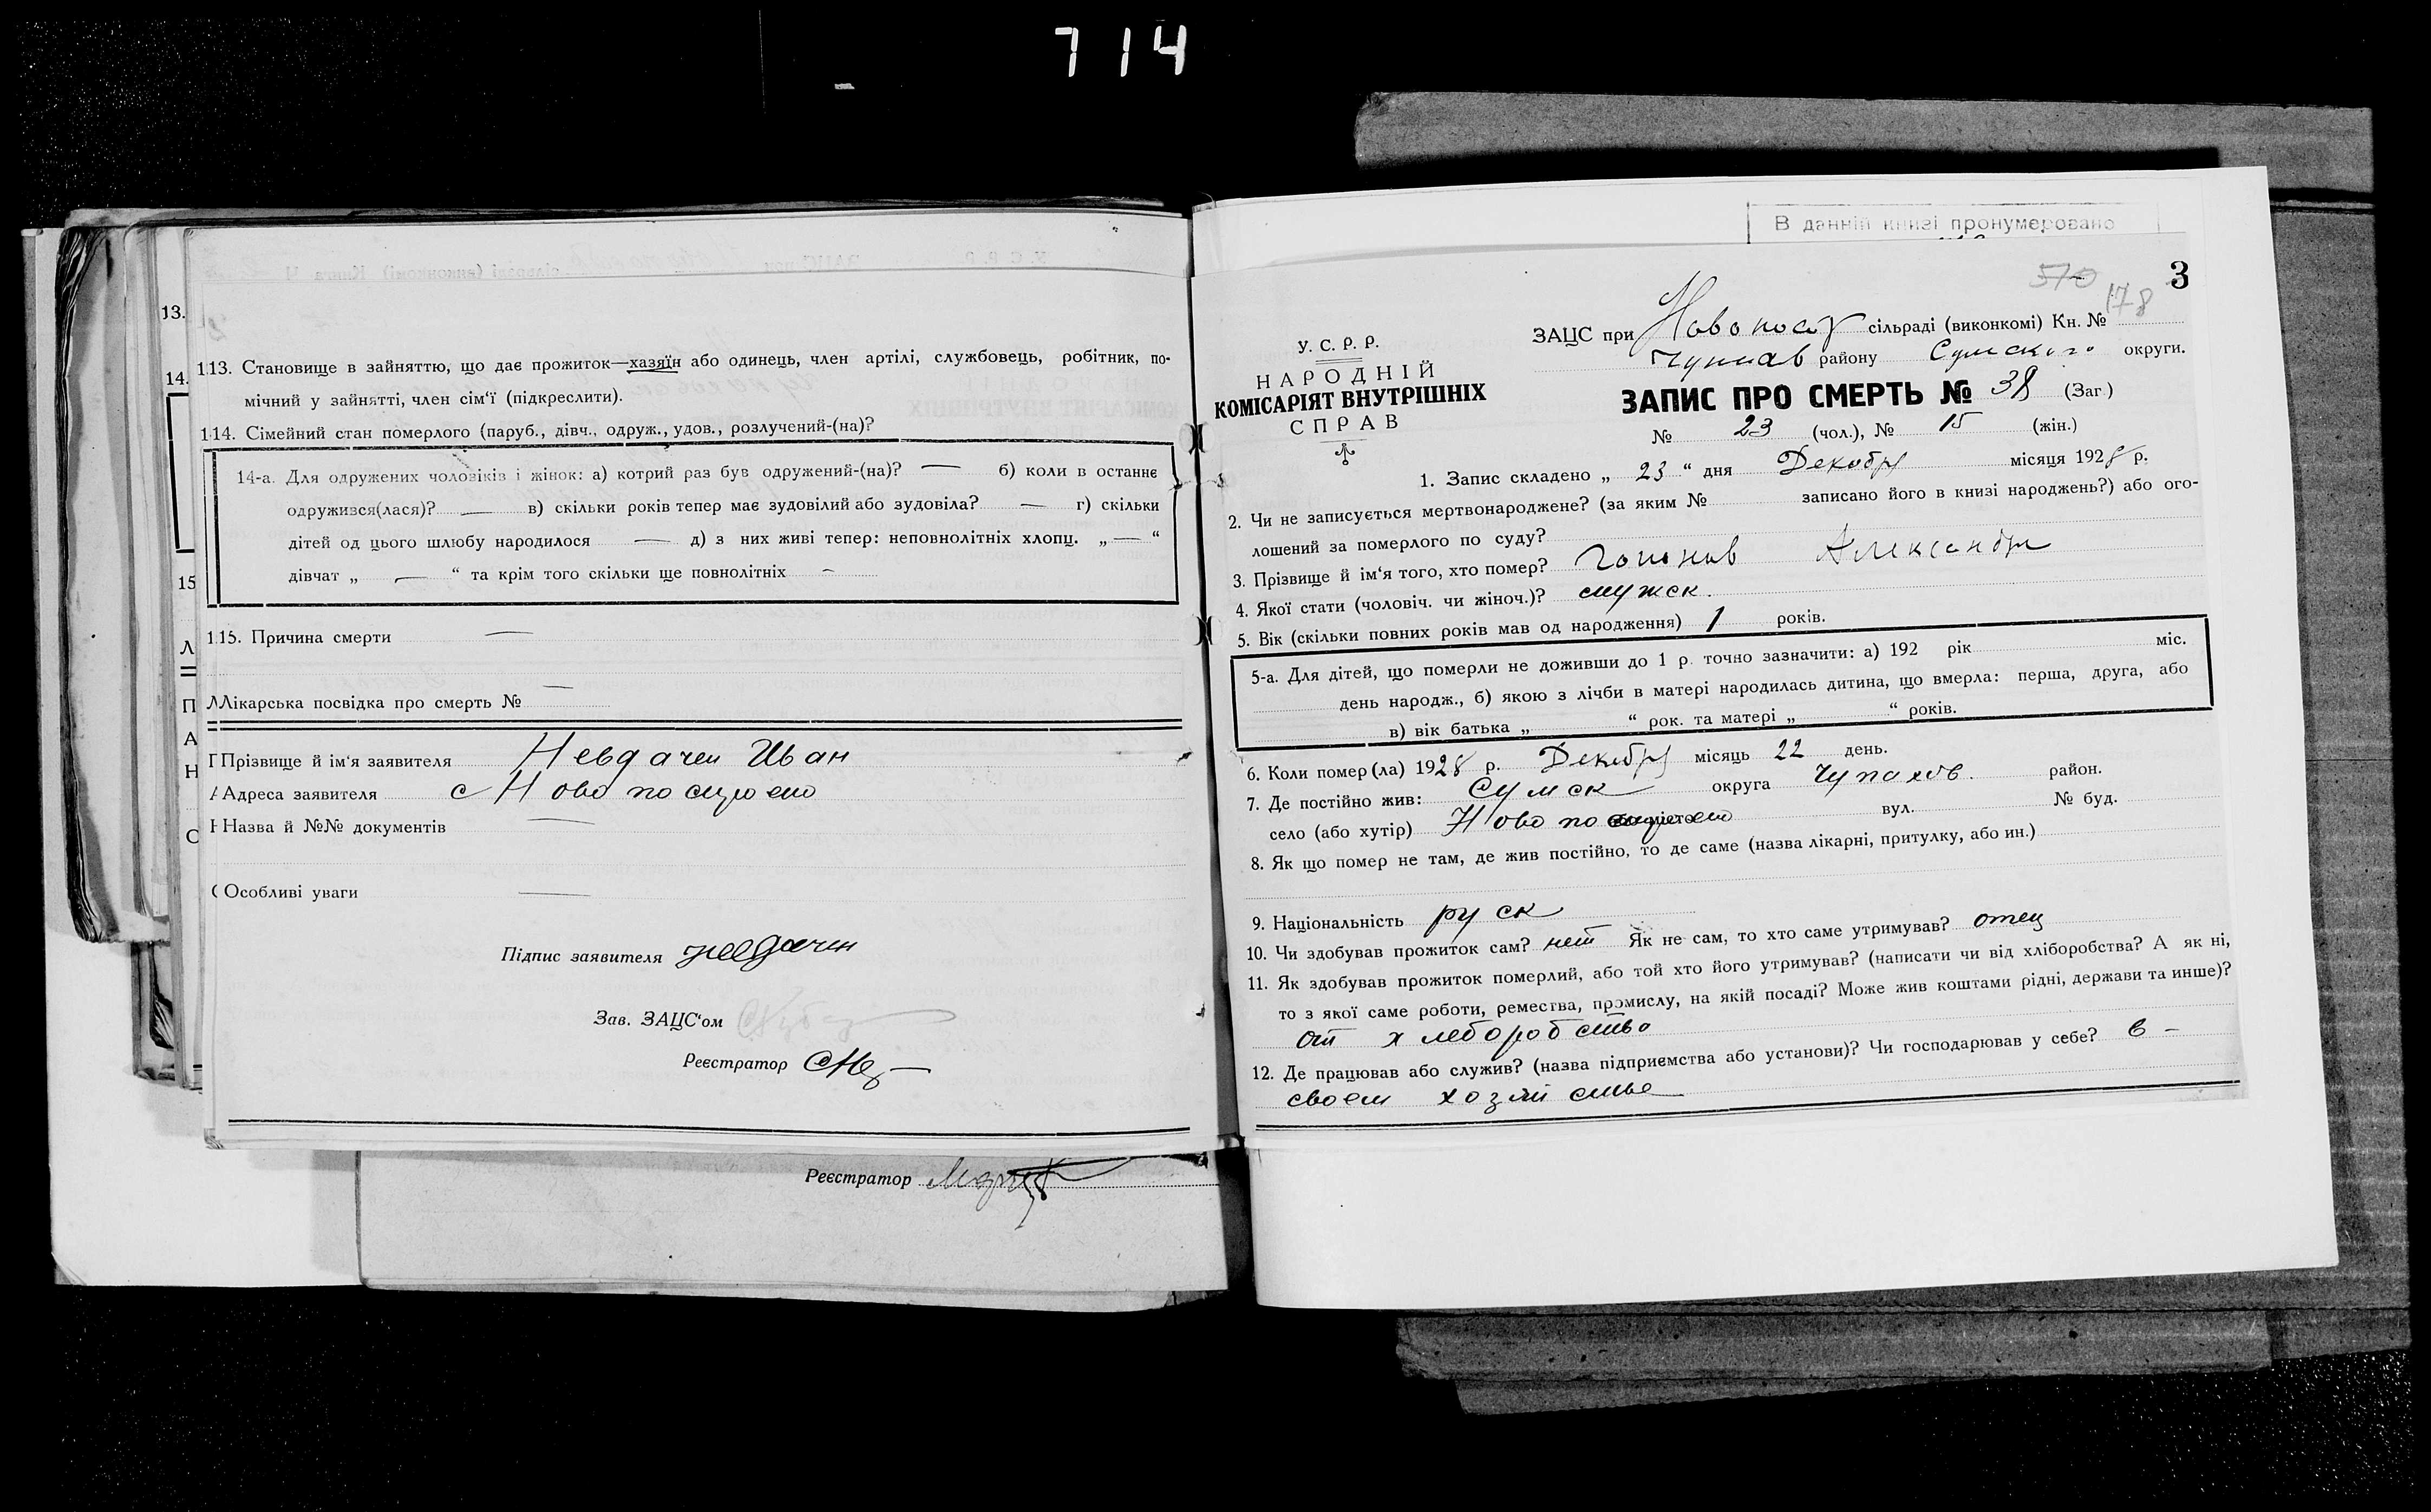 714
13.
14.
15
Л
П
А
Н
С
113. Становище в зайняттю, що дає прожиток—хазяїн або одинець, член артілі, службовець, робітник, по-
мічний у зайнятті, член сім'ї (підкреслити).
114. Сімейний стан померлого (паруб., дівч., одруж., удов., розлучений-(на)?
14-а. Для одружених чоловіків і жінок: а) котрий раз був одружений-(на)? — б) коли в останнє
одружився(лася)? — в) скільки років тепер має зудовілий або зудовіла? — г) скільки
дітей од цього шлюбу народилося — д) з них живі тепер: неповнолітніх хлопц. „—“
дівчат „ — “ та крім того скільки ще повнолітніх —
115. Причина смерти —
Лікарська посвідка про смерть № —
Прізвище й ім'я заявителя Невдачен Иван
Адреса заявителя с Ново построено
Назва й №№ документів —
Особливі уваги —
Підпис заявителя Невдачен
Зав. ЗАЦС'ом
Реєстратор
Реєстратор
В данній книзі пронумеровано
570
178
3
У. С. Р. Р.
НАРОДНІЙ
КОМІСАРІЯТ ВНУТРІШНІХ
СПРАВ
ЗАЦС при Новопост сільраді (виконкомі) Кн. №
району Сумского округи.
ЗАПИС ПРО СМЕРТЬ № 38 (Заг.)
№ 23 (чол.), № 15 (жін.)
1. Запис складено „ 23 “ дня Декабря місяця 1928 р.
2. Чи не записується мертвонароджене? (за яким № записано його в книзі народжень?) або ого-
лошений за померлого по суду?
3. Прізвище й ім'я того, хто помер? Александр
4. Якої стати (чоловіч. чи жіноч.)? мужск.
5. Вік (скільки повних років мав од народження) 1 років.
5-а. Для дітей, що померли не доживши до 1 р. точно зазначити: а) 192 рік міс.
день народж., б) якою з лічби в матері народилась дитина, що вмерла: перша, друга, або
в) вік батька „ “ рок. та матері „ “ років.
6. Коли помер(ла) 1928 р. Декабря місяць 22 день.
7. Де постійно жив: Сумск округа Чупахов. район.
село (або хутір) Ново построено вул. № буд.
8. Як що помер не там, де жив постійно, то де саме (назва лікарні, притулку, або ин.)
9. Національність руск
10. Чи здобував прожиток сам? нет Як не сам, то хто саме утримував? отец
11. Як здобував прожиток померлий, або той хто його утримував? (написати чи від хліборобства? А як ні,
то з якої саме роботи, ремества, промислу, на якій посаді? Може жив коштами рідні, держави та инше)?
от хлеборобства
12. Де працював або служив? (назва підприємства або установи)? Чи господарював у себе? в -
своем хозяйстве